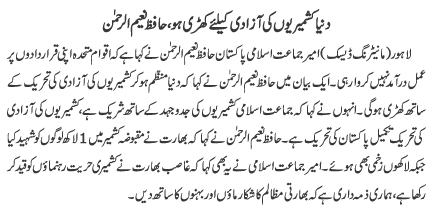 دنیا کشمیریوں کی آزادی کیلئے کھڑی ہو، حافظ نعیم الرحمٰن
لاہور (مانیٹرنگ ڈیسک) امیر جماعت اسلامی پاکستان حافظ نعیم الرحمٰن نے کہا ہے کہ اقوام متحدہ اپنی قراردادوں پر
عمل درآمد نہیں کروا رہی۔ ایک بیان میں حافظ نعیم الرحمٰن نے کہا کہ دنیا منظم ہو کر کشمیریوں کی آزادی کی تحریک کے
ساتھ کھڑی ہو گی۔ انہوں نے کہا کہ جماعت اسلامی کشمیریوں کی جدوجہد کے ساتھ شریک ہے، کشمیریوں کی آزادی
کی تحریک تکمیل پاکستان کی تحریک ہے۔ حافظ نعیم الرحمٰن نے کہا کہ بھارت نے مقبوضہ کشمیر میں 1 لاکھ لوگوں کو شہید کیا
جبکہ لاکھوں زخمی بھی ہوئے۔ امیر جماعت اسلامی نے یہ بھی کہا کہ غاصب بھارت نے کشمیری حریت رہنماؤں کو قید کر
رکھا ہے، ہماری ذمہ داری ہے کہ بھارتی مظالم کا شکار ماؤں اور بہنوں کا ساتھ دیں۔